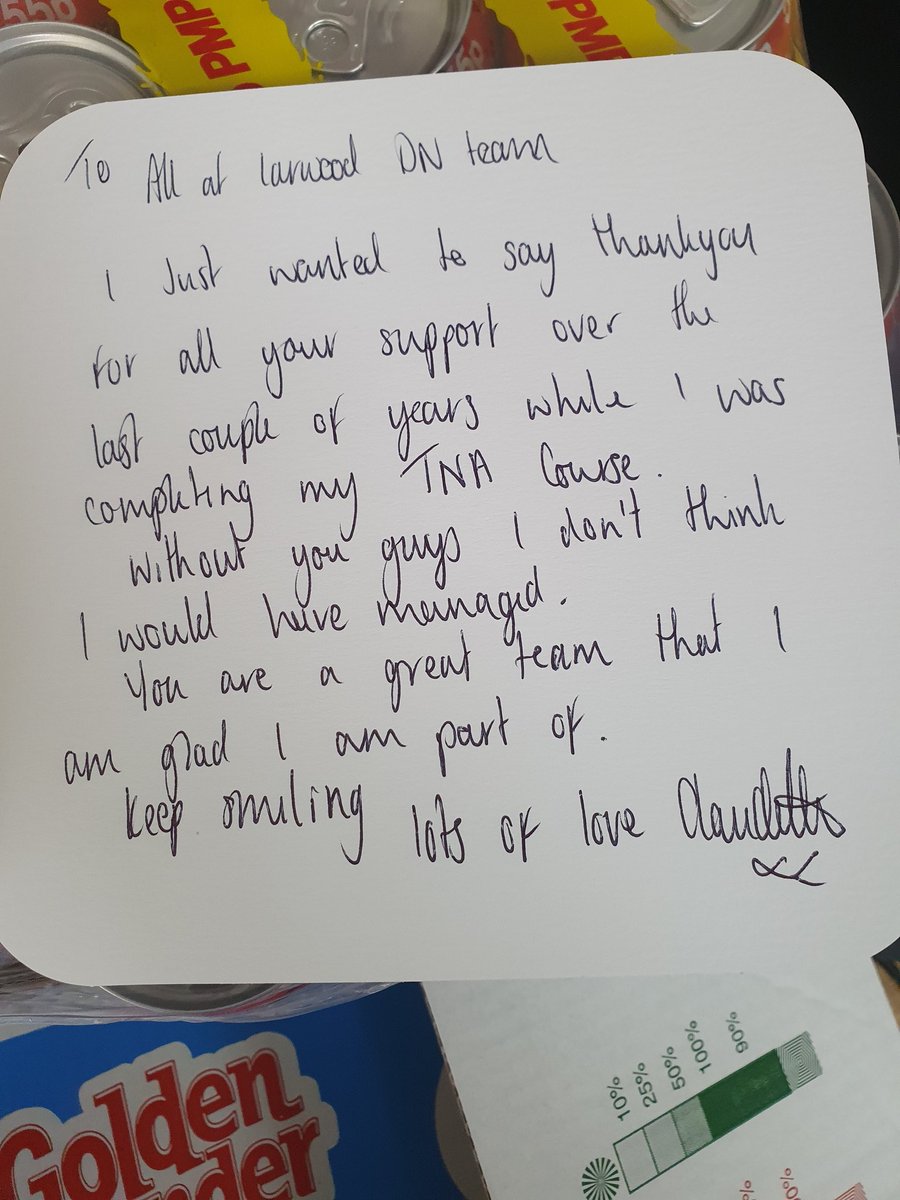 55p
PMP
PMP
To All at Larwood DN team
I Just wanted to say thankyou
for all your support over the
last couple of years while I was
completing my TNA Course.
Without you guys I don't think
I would have managed.
You are a great team that I
am glad I am part of.
Keep smiling
lots of love Claudette
Golden
10%
25%
50%
100%
90%